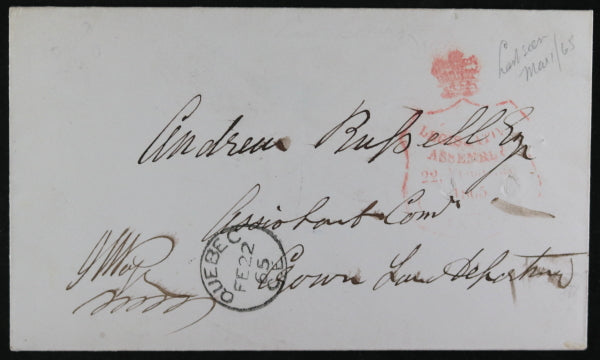 Last seen
Mar 1/65
LEGISLATIVE
ASSEMBLY
22
1865
Andrew Russell Esq
Assistant Comr
Crown Land Department
QUEBEC
FE 22
65